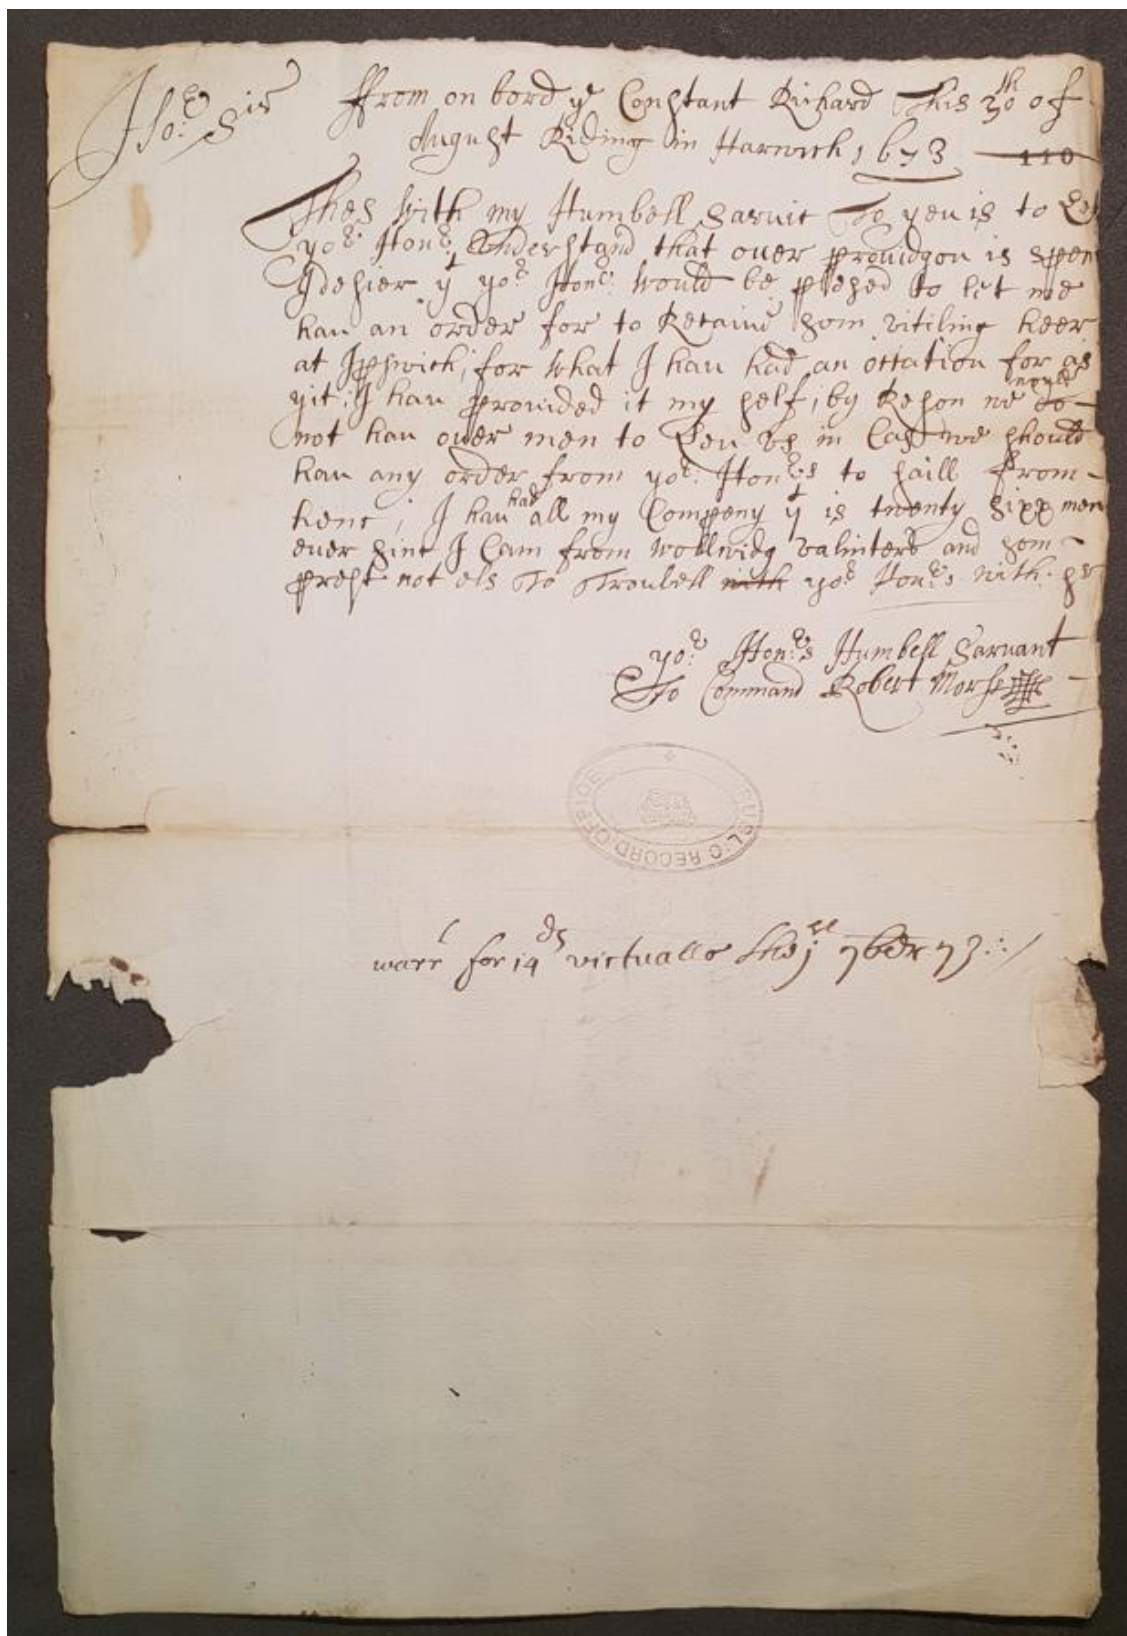 Ho:r Sir
From on bord ye Constant Richard This 30th of
August Riding in Harwich 1673 110
Thes with my Humbell Sarvic To you is to Let
yor: Honr: Understand that over providgon is spen
I desier yt yor Honr: would be plesed to let me
hav an order for to Retaine som vitiling heer
at Ipswich; for what I hav had an ocation for as
yit; I hav provided it my self; by Reson we would do
not hav over men to Lev us in Cas we should
hav any order from yor: Honrs to saill from
henc; I hav had all my Compeny yt is twenty sixx men
ever sinc I Cam from wollwidg valinters and som
prest not els To Troubell with yor Honrs with: Sr
yor: Honrs Humbell Sarvant
To Command Robert Morse
PUBLIC RECORD OFFICE
warrt for 14 ds victualls this jst 7ber 73